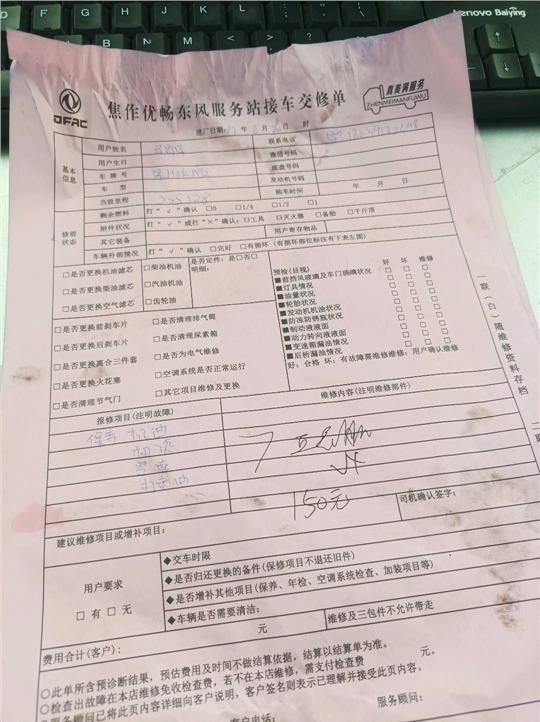 Lenovo Baiying
DFAC
焦作优畅东风服务站接车交修单
真美满服务
ZHENMEIMANFUWU
进厂日期 年 月 日 时
基本信息
用户姓名 联系电话
用户生日 微信号码
车牌号 底盘号码
车型 发动机号码
当前里程 购车时间 年 月 日
修前状态
剩余燃料 打“√”确认 □0 □1/4 □1/2 □1
附件状况 打“√”或打“×”确认:□工具 □灭火器 □备胎 □千斤顶
其它装备 用户寄存物品
车辆外部情况 打“√”确认 □完好 □有损坏(有损坏部位标注有下表左图)
□是否更换机油滤芯 □柴油机油 是否定件:□是□否
明细:
□是否更换柴油滤芯 □汽油机油
□是否更换空气滤芯 □齿轮油
□是否更换前刹车片 □是否清理排气筒
□是否更换后刹车片 □是否清理尿素箱
□是否更换离合三件套 □是否为电气维修
□是否更换火花塞 □空调系统是否正常运行
□是否清理节气门 □其它项目维修及更换
预检(目视) 好 坏 维修
■前挡风玻璃及车门玻璃状况 □ □ □
■灯具情况 □ □ □
■油量状况 □ □ □
■轮胎状况 □ □ □
■发动机机油状况 □ □ □
■防冻防锈瓶状况 □ □ □
■制动液液面 □ □ □
■动力转向液液面 □ □ □
■变速箱漏油情况 □ □ □
■后桥漏油情况 □ □ □
好:合格 坏:有故障需维修维修:用户确认维修
一联(白)随维修资料存档
二联
报修项目(注明故障) 维修内容(注明维修部件)
保养 机油
机滤
150元
司机确认签字:
建议维修项目或增补项目:
用户要求
□有 □无
◆交车时限
◆是否归还更换的备件(保修项目不退还旧件)
◆是否增补其他项目(保养、年检、空调系统检查、加装项目等)
◆车辆是否需要清洁:
维修及三包件不允许带走
费用合计(客户): 元
○此单所含预诊断结果,预估费用及时间不做结算依据,结算以结算单为准。
○检查出故障在本店维修免收检查费,若不在本店维修,需支付检查费 元。
○服务顾问已将此页内容详细向客户说明,客户签名则表示已理解并接受此页内容。
客户电话: 服务顾问: